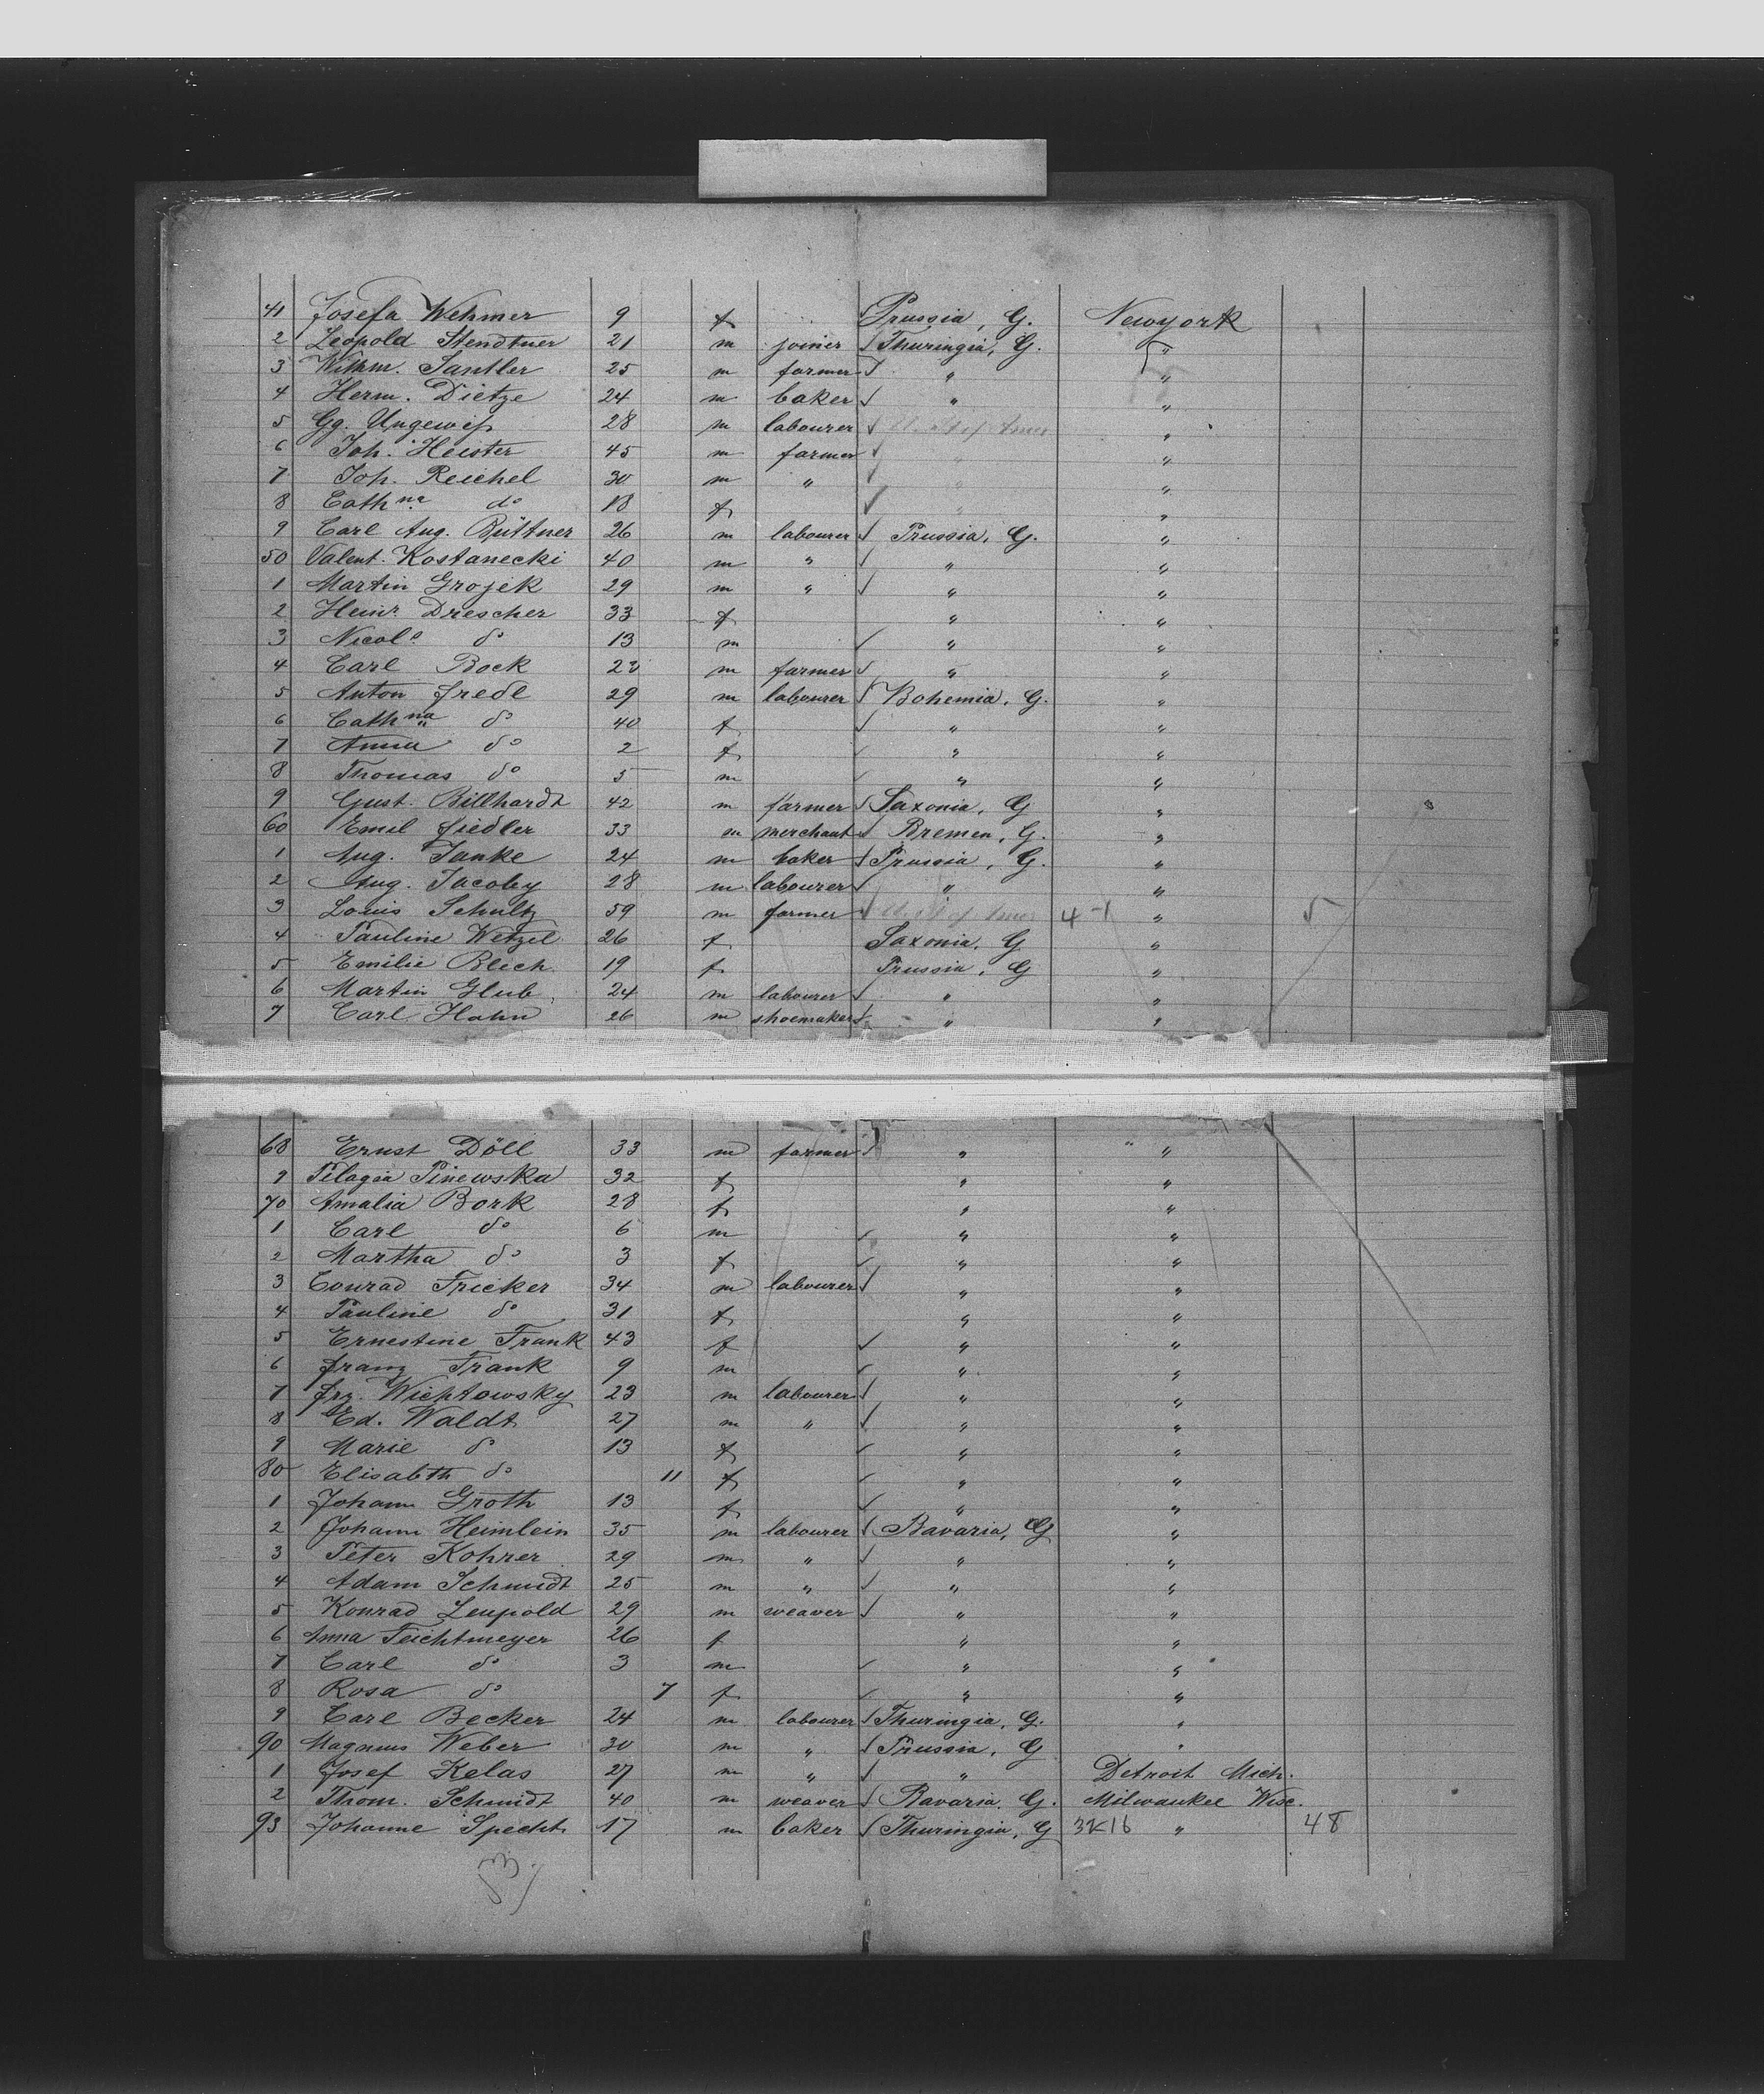 41 Josefa Wehmer 9 f Prussia, G. Newyork
2 Leopold Stendtner 21 m joiner Thuringia, G. "
3 Wilhm. Santler 25 m farmer " "
4 Herm. Dietze 24 m baker " "
5 Gg. Ungewiß 28 m labourer U. St of Amer "
6 Joh. Heister 45 m farmer " "
7 Joh. Reichel 30 m " " "
8 Cathna do 18 f " "
9 Carl Aug. Büttner 26 m labourer Prussia, G. "
50 Valent. Kostanecki 40 m " " "
1 Martin Grojek 29 m " " "
2 Heinr. Drescher 33 f " "
3 Nicols do 13 m " "
4 Carl Bock 23 m farmer " "
5 Anton Fredl 29 m labourer Bohemia, G. "
6 Cathna do 40 f " "
7 Anna do 2 f " "
8 Thomas do 5 m " "
9 Gust. Billhardt 42 m farmer Saxonia, G "
60 Emil Fiedler 33 m merchant Bremen, G. "
1 Aug. Janke 24 m baker Prussia, G. "
2 Aug. Jacoby 28 m labourer " "
3 Louis Schultz 59 m farmer U. St of Amer 4-1 " 5
4 Pauline Wetzel 26 f Saxonia, G "
5 Emilie Blech 19 f Prussia, G "
6 Martin Glub 24 m labourer " "
7 Carl Hahn 26 m shoemaker " "
68 Ernst Döll 33 m farmer " "
9 Pelagia Pinewska 32 f " "
70 Amalia Bork 28 f " "
1 Carl do 6 m " "
2 Martha do 3 f " "
3 Conrad Fricker 34 m labourer " "
4 Pauline do 31 f " "
5 Ernestine Frank 43 f " "
6 Franz Frank 9 m " "
7 Frz. Wichtowsky 23 m labourer " "
8 Ed. Waldt 27 m " " "
9 Marie do 13 f " "
80 Elisabeth do 11 f " "
1 Johann Groth 13 f " "
2 Johann Heimlein 35 m labourer Bavaria, G "
3 Peter Kohrer 29 m " " "
4 Adam Schmidt 25 m " " "
5 Konrad Leupold 29 m weaver " "
6 Anna Feichtmeyer 26 f " "
7 Carl do 3 m " "
8 Rosa do 7 f " "
9 Carl Becker 24 m labourer Thuringia, G. "
90 Magnus Weber 30 m " Prussia, G "
1 Josef Kelas 27 m " " Detroit Mich.
2 Thom. Schmidt 40 m weaver Bavaria, G. Milwaukee Wisc.
93 Johanne Specht 17 m baker Thuringia, G 32-16 " 48
53.